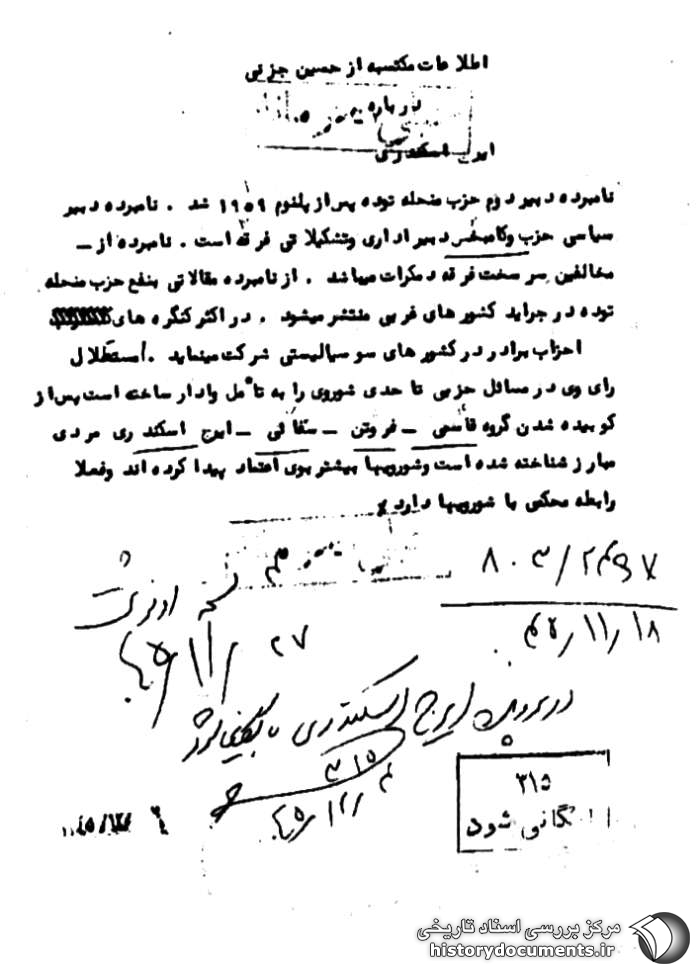 اطلاعات مکتسبه از حسین جزنی
درباره
ایرج اسکندری
نامبرده دبیر دوم حزب منحله توده پس از پلنوم ۱۹۵۹ شد . نامبرده دبیر
سیاسی حزب وکامبخش دبیر اداری وتشکیلاتی فرقه است . نامبرده از ـ
مخالفین سر سخت فرقه دمکرات میباشد . از نامبرده مقالاتی بنفع حزب منحله
توده در جراید کشور های غربی منتشر میشود . در اکثر کنگره های
احزاب برادر در کشور های سوسیالیستی شرکت مینماید . استقلال
رای وی در مسائل حزبی تا حدی شوروی را به تأمل وادار ساخته است پس از
کوبیده شدن گروه قاسمی ـ فروتن ـ سغائی ـ ایرج اسکندری مردی
مبارز شناخته شده است وشورویها بیشتر بوی اعتماد پیدا کرده اند وفعلا
رابطه محکمی با شورویها دارد
۸۰۳/۲۴۹۷
۴۵/۱۱/۱۸
۴۵/۱۱/۲۷
در پرونده ایرج اسکندری بایگانی شود
۳۱۵
۴۵/۱۲/۴
۳۱۵
بایگانی شود
مرکز بررسی اسناد تاریخی
historydocuments.ir